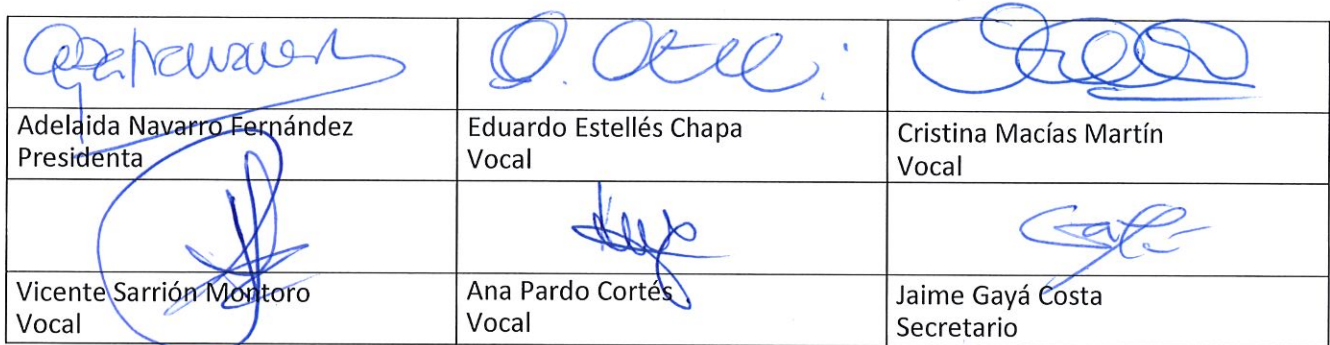 Adelaida Navarro Fernández
Presidenta
Eduardo Estellés Chapa
Vocal
Cristina Macías Martín
Vocal
Vicente Sarrión Montoro
Vocal
Ana Pardo Cortés
Vocal
Jaime Gayá Costa
Secretario